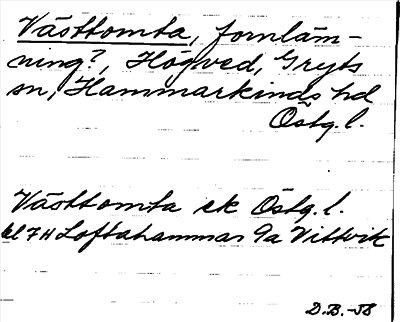 Västtomta, fornläm-
ning?, Högved, Gryts
sn, Hammarkinds hd
Östg. l.
Västtomta ek Östg. l.
bl 7H Loftahammar 9a Vittvik
D.B.-58